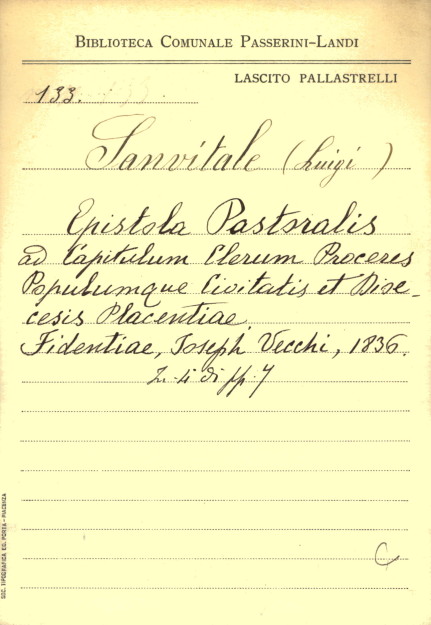 BIBLIOTECA COMUNALE PASSERINI-LANDI
LASCITO PALLASTRELLI
133.
Sanvitale (Luigi)
Epistola Pastoralis
ad Capitulum Clerum Proceres
Populumque Civitatis et Dioe-
cesis Placentiae.
Fidentiae, Joseph Vecchi, 1836.
di pp. 7
C
SOC. TIPOGRAFICA ED. PORTA - PIACENZA